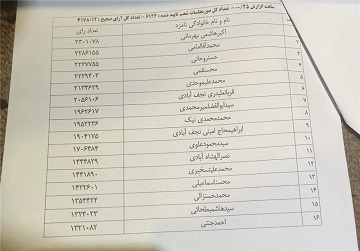 ساعت گزارش ۰۰/۴۵ - تعداد کل صورتجلسات شعب تایید شده : ۶۱۲۴ - تعداد کل آرای صحیح : ۴۱۷۸۰۱۲
نام و نام خانوادگی نامزد تعداد رای
۱ اکبرهاشمی بهرمانی ۲۳۰۱۰۷۸
۲ محمدآقاامامی ۲۲۸۶۱۵۵
۳ حسنروحانی ۲۲۳۷۷۵۵
۴ محسنقمی ۲۲۲۹۴۰۳
۵ محمدعلیموحدی ۲۱۳۴۶۲۹
۶ قربانعلیدری نجف آبادی ۲۰۵۶۱۰۶
۷ سیدابوالفضلمیرمحمدی ۱۹۶۲۶۱۷
۸ محمدمحمدی نیک ۱۹۵۲۳۳۶
۹ ابراهیمحاج امینی نجف آبادی ۱۹۰۴۱۷۵
۱۰ سیدمحمودعلوی ۱۷۰۶۴۸۴
۱۱ نصرالهشاه آبادی ۱۴۴۴۸۲۹
۱۲ محمدعلیتسخیری ۱۴۴۱۸۹۰
۱۳ محسناسماعیلی ۱۴۲۳۶۰۱
۱۴ محمدحسنزالی
۱۵ سیدهاشمبطحائی ۱۳۲۴۰۲۳
۱۶ احمدجنتی ۱۳۲۱۰۸۲